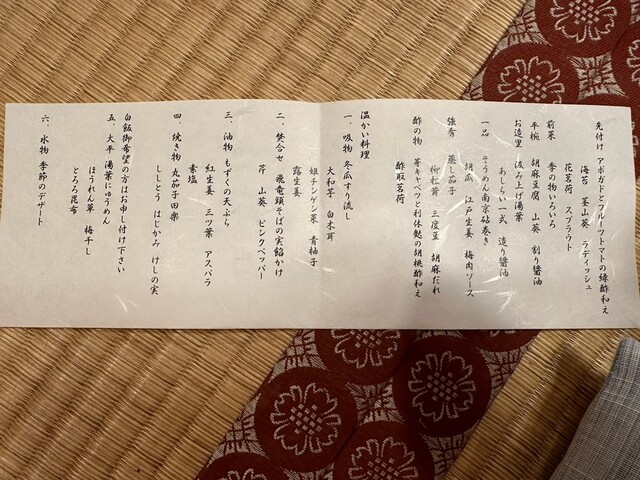 先付け アボガドとフルーツトマトの緑酢和え
海苔 茎山葵 ラディッシュ
花茗荷 スプラウト
前菜 季の物いろいろ
平椀 胡麻豆腐 山葵 割り醬油
お造里 汲み上げ湯葉
あしらい一式 造り醬油
一品 そうめん南京砧巻き
胡瓜 江戸生姜 梅肉ソース
強肴 蒸し茄子
柳松茸 三度豆 胡麻だれ
酢の物 筍キャベツと利休麩の胡桃酢和え
酢取茗荷
温かい料理
一、吸物 冬瓜すり流し
大和芋 白木茸
姫チンゲン菜 青柚子
露生姜
二、焚合せ 飛竜頭そばの実餡かけ
芹 山葵 ピンクペッパー
三、油物 もずくの天ぷら
紅生姜 三ツ葉 アスパラ
素塩
四、焼き物 丸茄子田楽
ししとう はじかみ けしの実
白飯御希望の方はお申し付け下さい
五、大平 湯葉にゅうめん
ほうれん草 梅干し
とろろ昆布
六、水物 季節のデザート